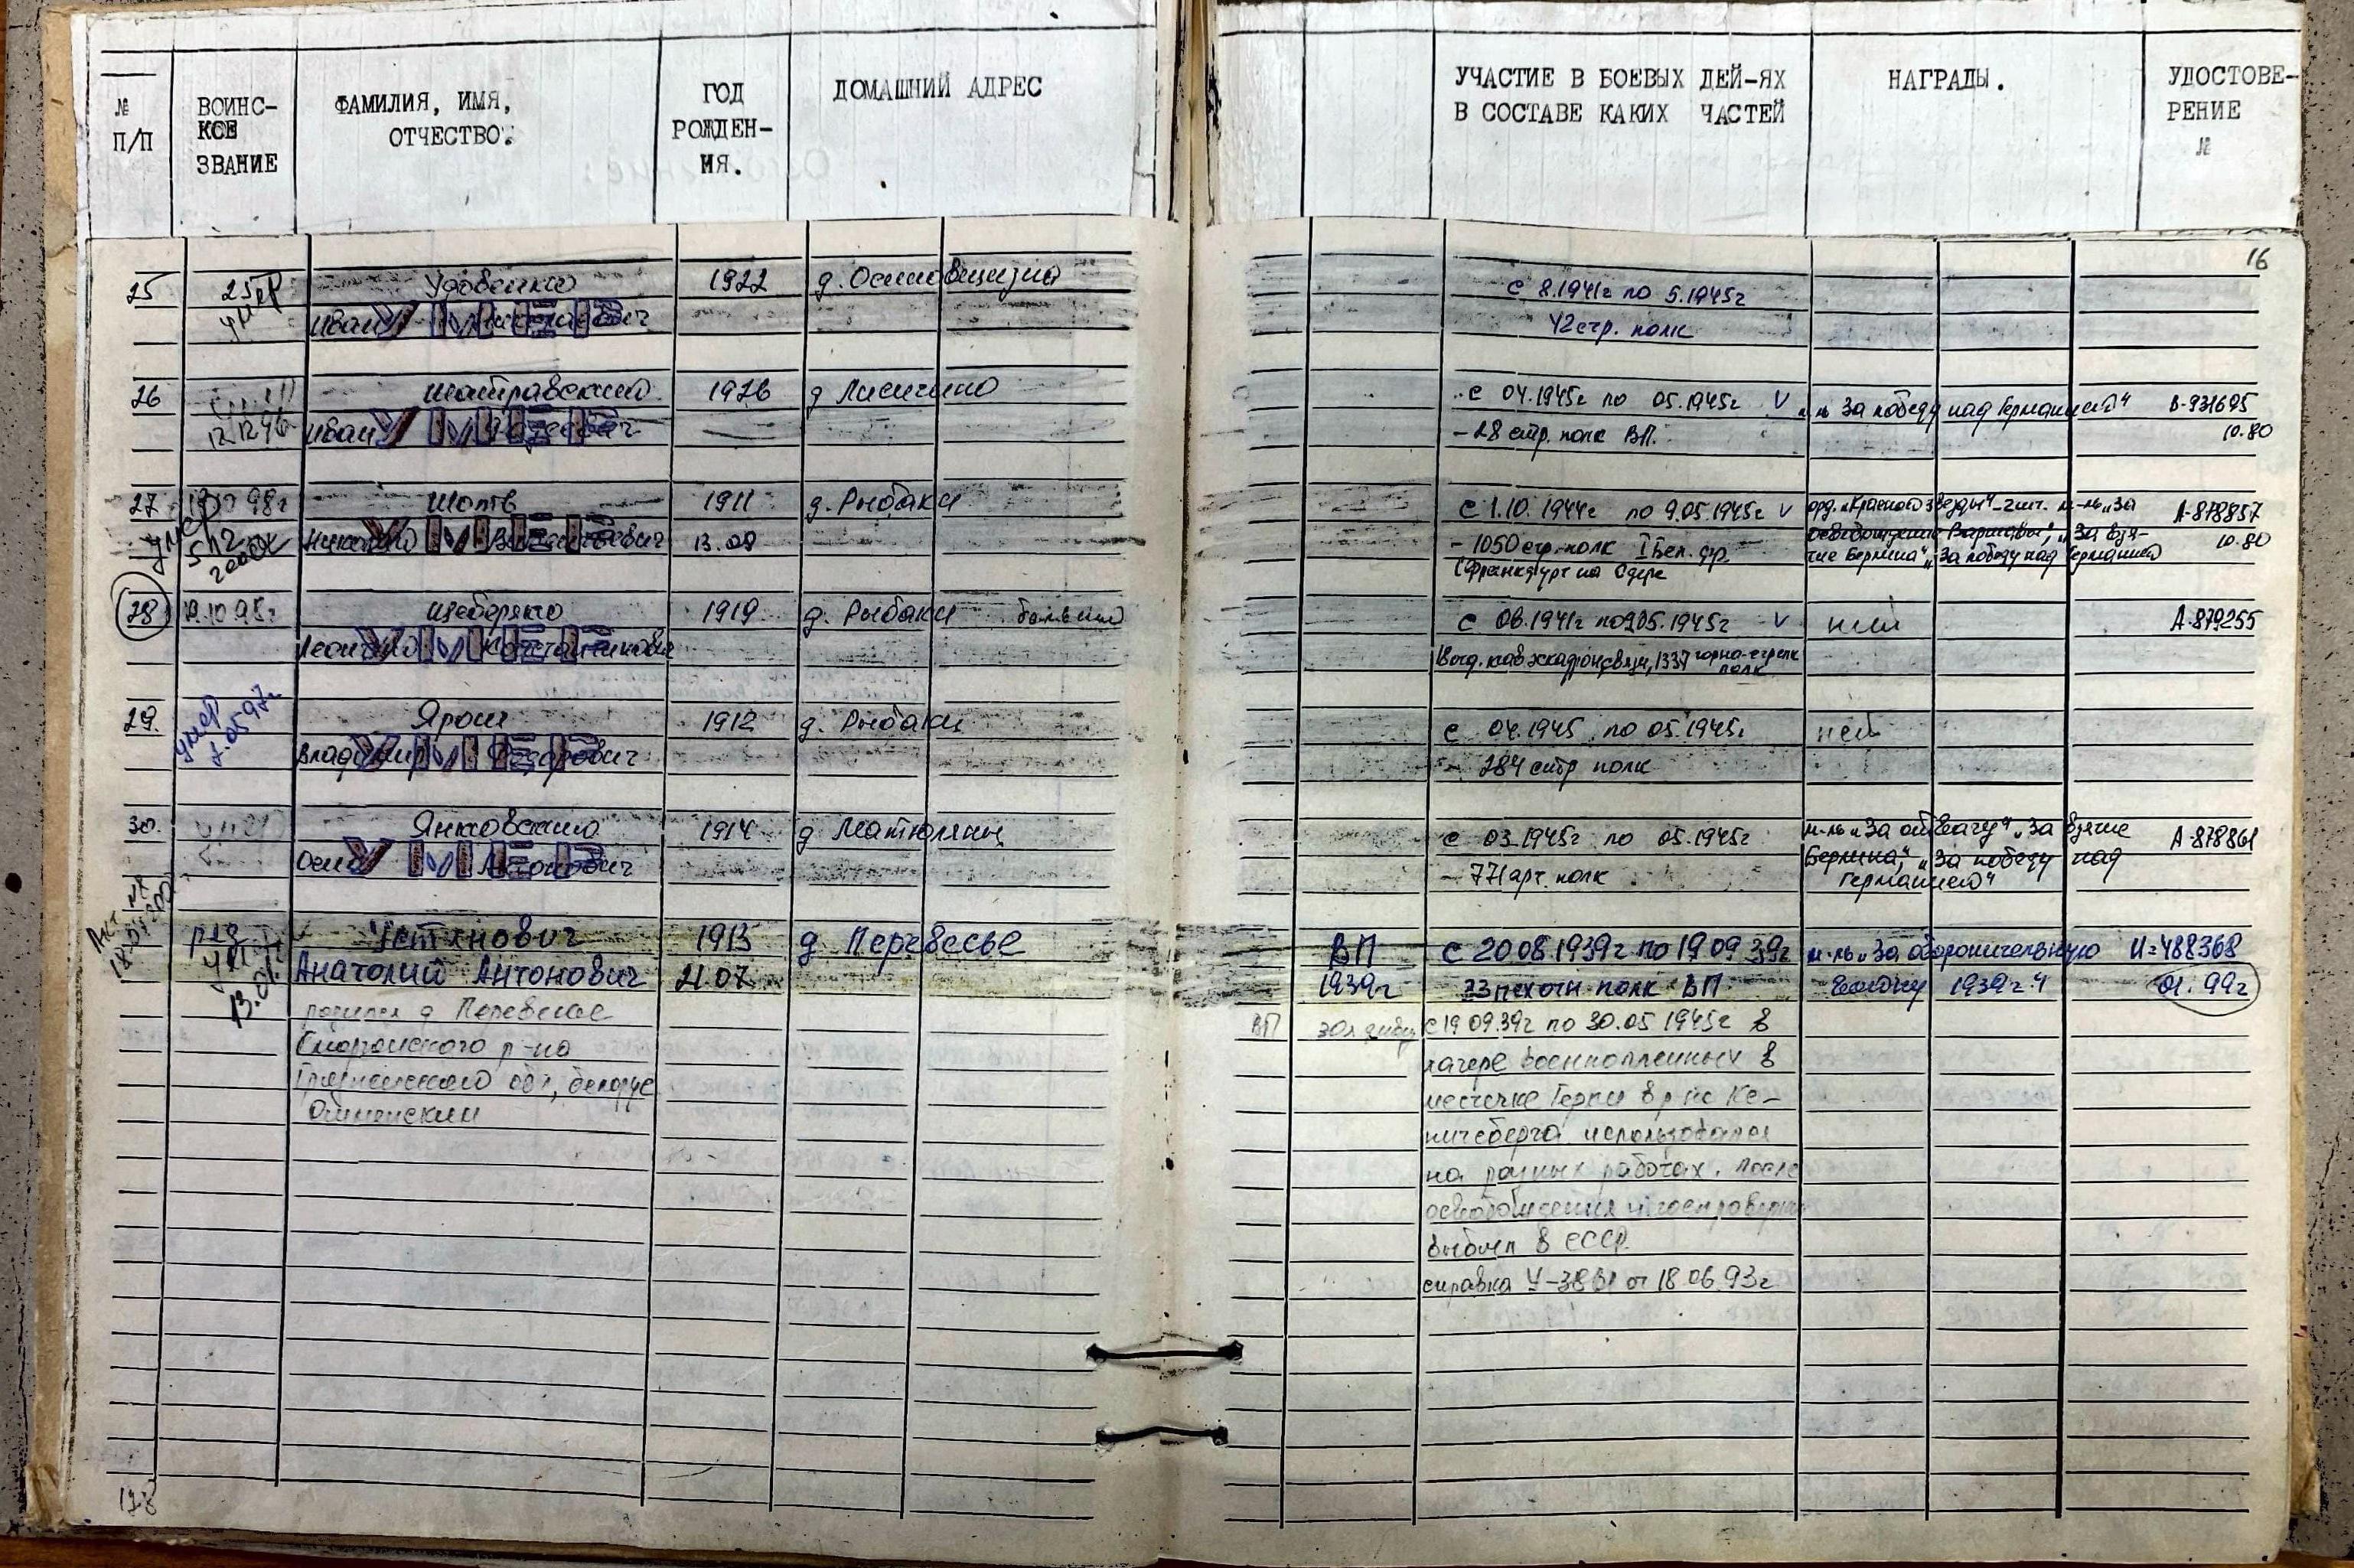 № П/П
ВОИНС-
КОЕ
ЗВАНИЕ
ФАМИЛИЯ, ИМЯ,
ОТЧЕСТВО.
ГОД
РОЖДЕН-
ИЯ.
ДОМАШНИЙ АДРЕС
УЧАСТИЕ В БОЕВЫХ ДЕЙ-ЯХ
В СОСТАВЕ КАКИХ ЧАСТЕЙ
НАГРАДЫ.
УДОСТОВЕ-
РЕНИЕ
№
16
25 умер Удовенко 1922 д. Осиновщизна с 8.1941г по 5.1945г
Иван УМЕР 42 стр. полк
26 Шатравский 1926 д Лисичино с 04.1945г по 05.1945г V м-ль За победу над Германией" В-931695
12.12.96 Иван УМЕР - 28 стр. полк ВП. 10.80
27 98г Шото 1911 д. Рыбаки с 1.10.1944г по 9.05.1945г V орд. „Красной звезды"-2шт. м-ль „За А-878857
умер Николай УМЕР 13.09 - 1050 стр. полк I Бел. фр. освобождение Варшавы", „За взя- 10.80
(Франкфурт на Одере тие Берлина" „За победу над Германией
28 10.95г Щеберяко 1919 д. Рыбаки с 06.1941г по 9.05.1945г V нет А-879255
Леонид УМЕР Константинович кав эскадрон связи, 1337 горно-стрелк
полк
29. умер Ярош 1912 д. Рыбаки с 04.1945 по 05.1945г нет
05 97г Владимир УМЕР Федорович - 284 стр полк
30. умер Янковский 1914 д Матюляны с 03.1945г по 05.1945г м-ль „За отвагу" „За взятие А-878861
УМЕР Антонович - 771 арт. полк Берлина", „За победу над
Германией"
ряд Устинович 1913 д Перевесье ВП с 20 08 1939г по 19 09 39г м-ль „За оборонительную И=488368
Анатолий Антонович 21.07 1939г 23 пехотн полк ВП войну 1939г." 01.99г
13.01. родился д Перевесье ВП с 19 09.39г по 30.05 1945г в
Сморгонского р-на лагере военнопленных в
Гродненской обл, белорус местечке в р-не Ке-
нигсберга использовался
на разных работах. После
освобождения
выбыл в СССР
справка У-3881 от 18 06.93г
178